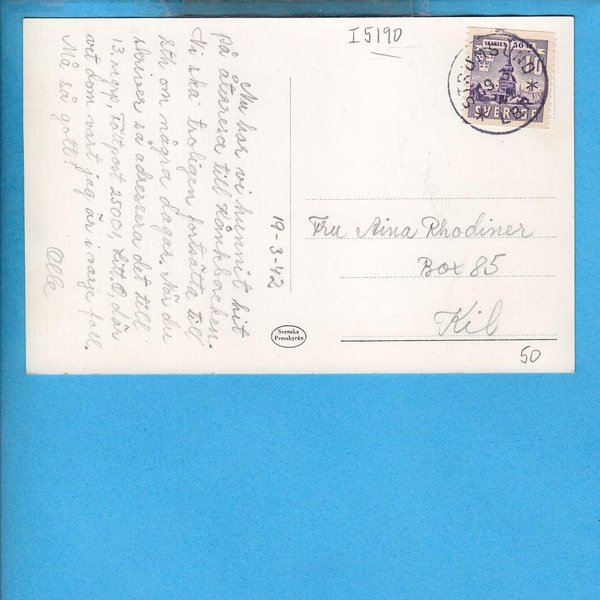 I 5190
SKANSEN 50 ÅR
SVERIGE
STRÖMSUND
LBR
19-3-42
Nu har vi hunnit hit
på återresa till
Vi ska troligen fortsätta till
Sth om några dagar. När du
skriver så adressera det till
13. Fältpost 25001, Litt O, där
vet dom vart jag är i varje fall.
Må så gott!
Olle
Fru Aina Rhodiner
Box 85
Kil
Svenska
Pressbyrån
50